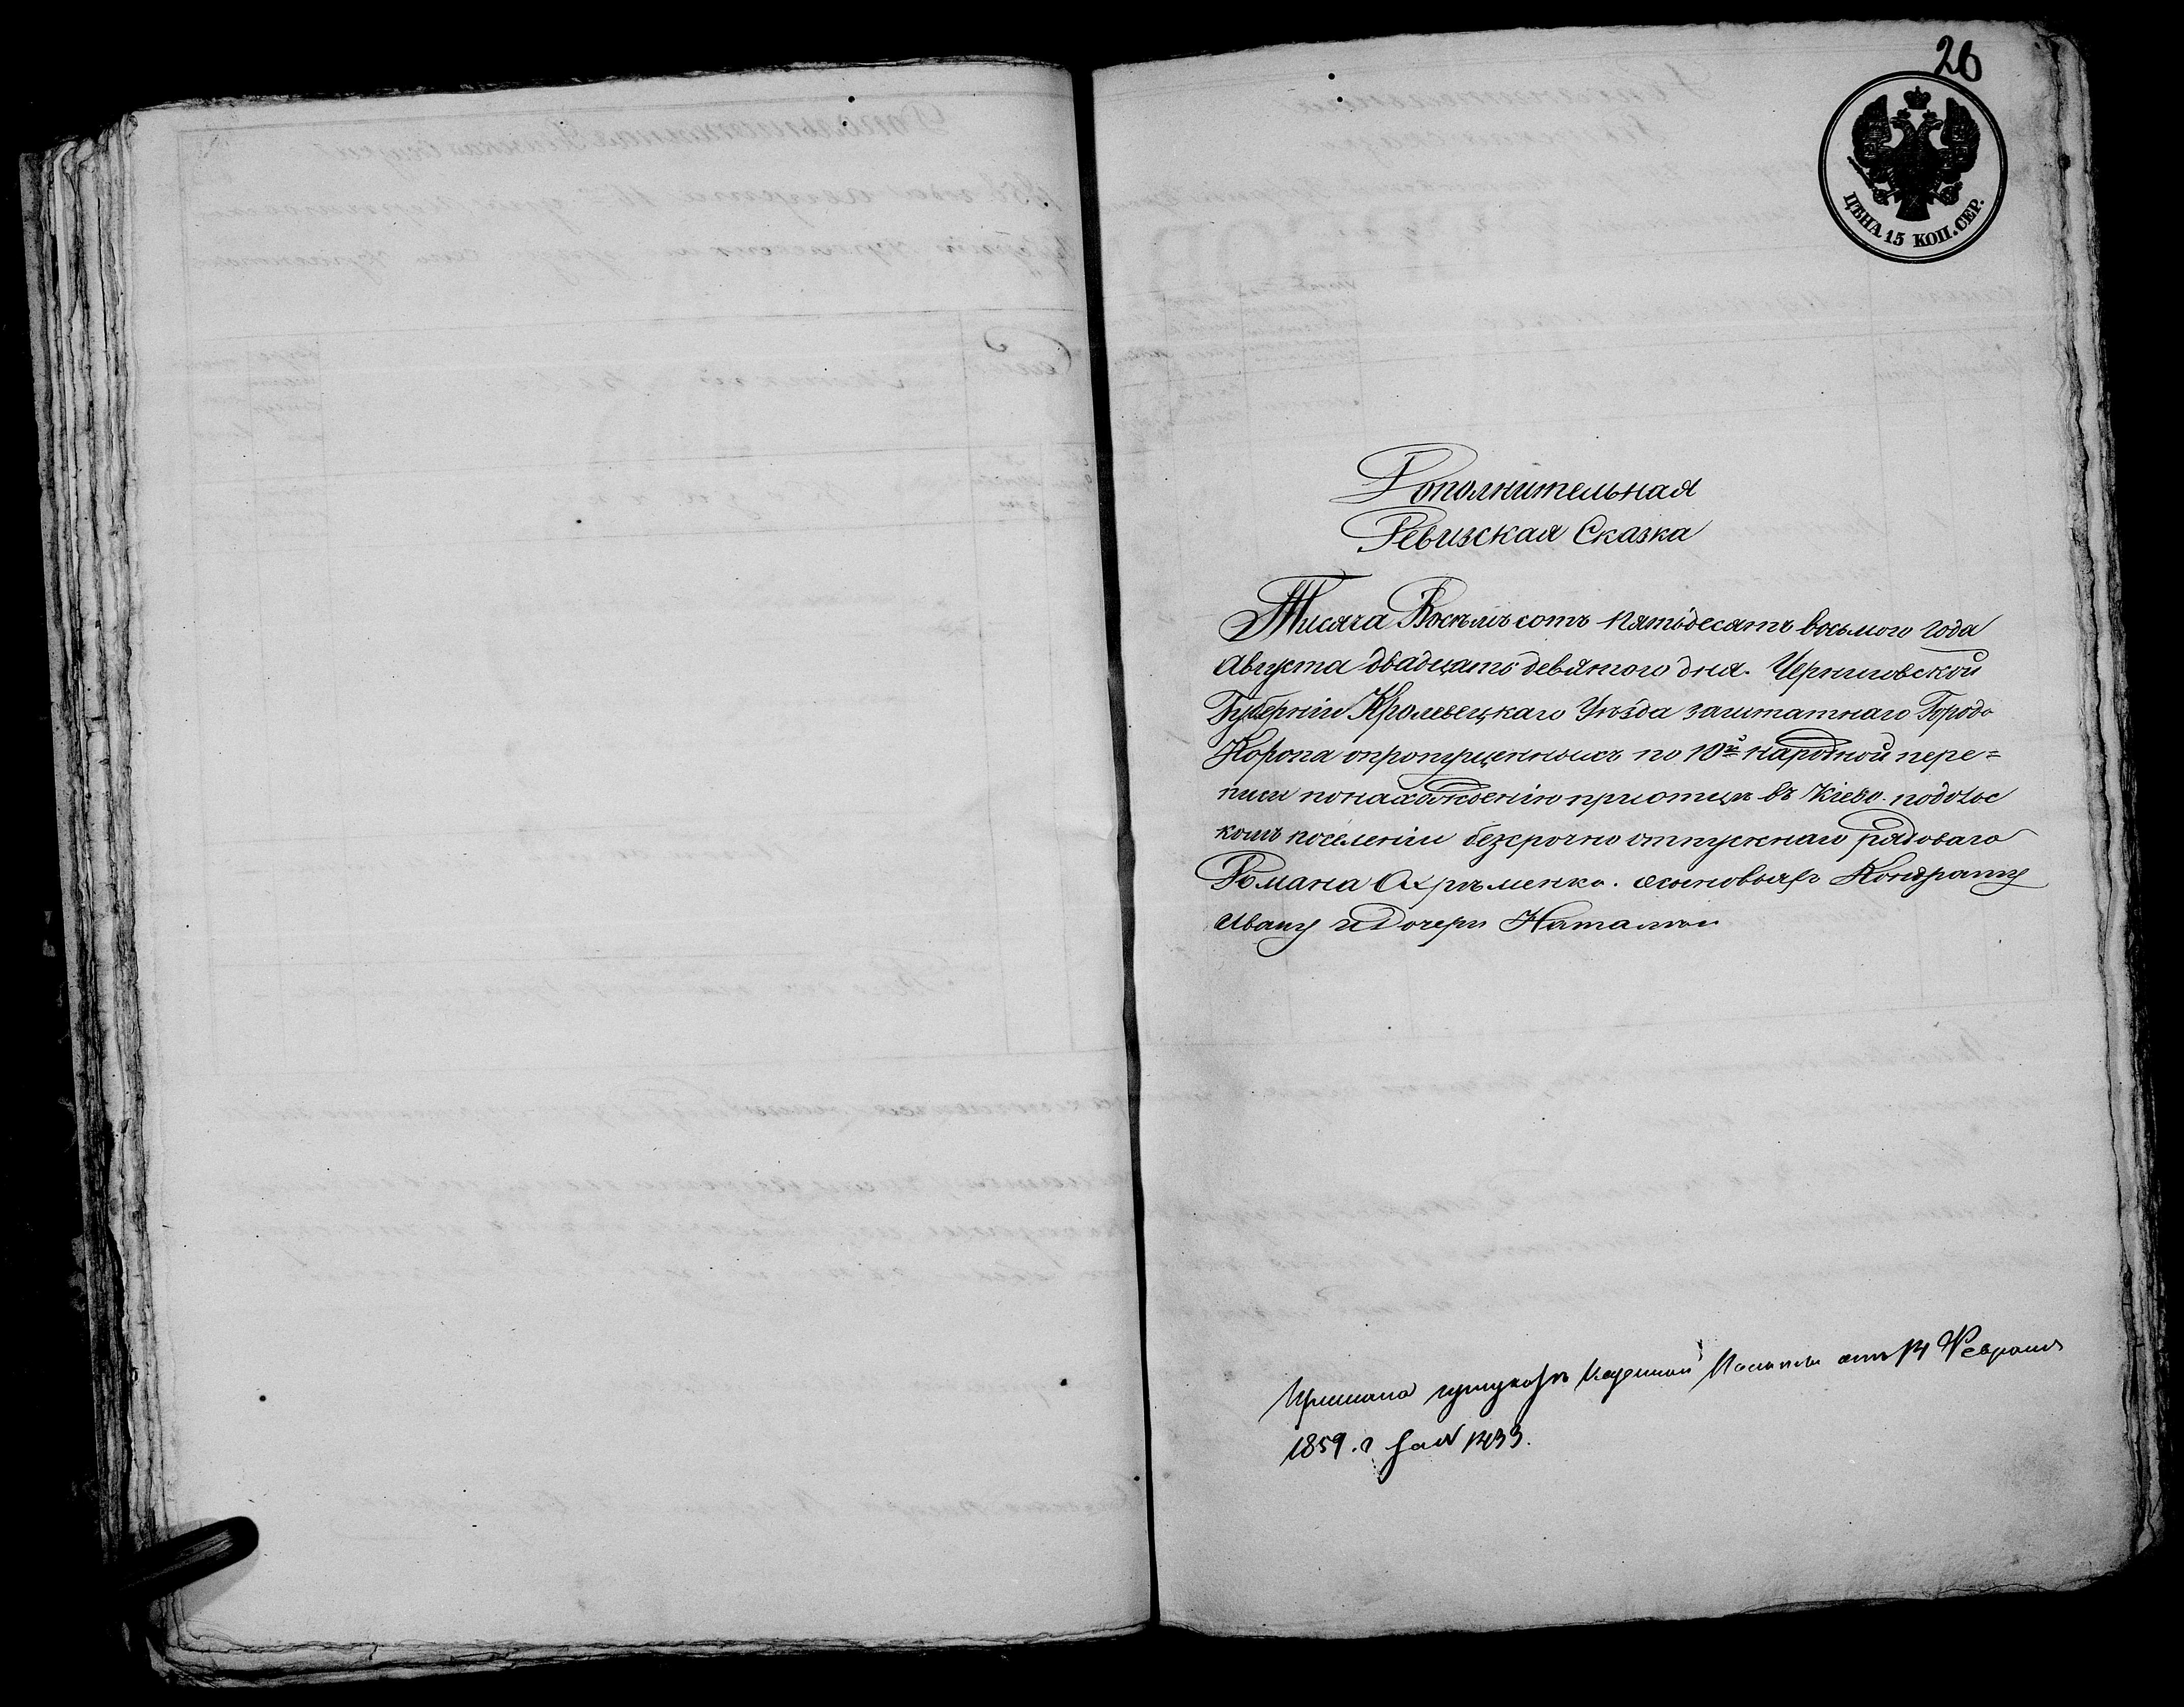 26
ЦѢНА 15 КОП. СЕР.
Дополнительная
Ревизская Сказка
Тисяча Восѣмъ сотъ пятьдесятъ восьмого года
Августа двадцать девятого дня. Черниговской
Губерніи Кролевецкаго Уѣзда заштатнаго Города
Коропа опропущенныхъ по 10й народной пере=
писи понахожденію приотцѣ въ Кіево. подольс
комъ поселеніи безсрочно отпускнаго рядоваго
Романа Охрѣменка. осыновьяхъ Кондрату
Ивану идочери Наталіи
Казенной Палаты отъ 14 Февраля
1859. г за № 1433.